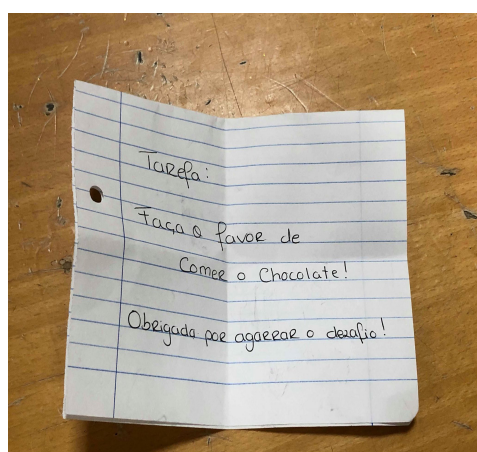 Tarefa:
Faça o favor de
Comer o Chocolate!
Obrigada por agarrar o desafio!